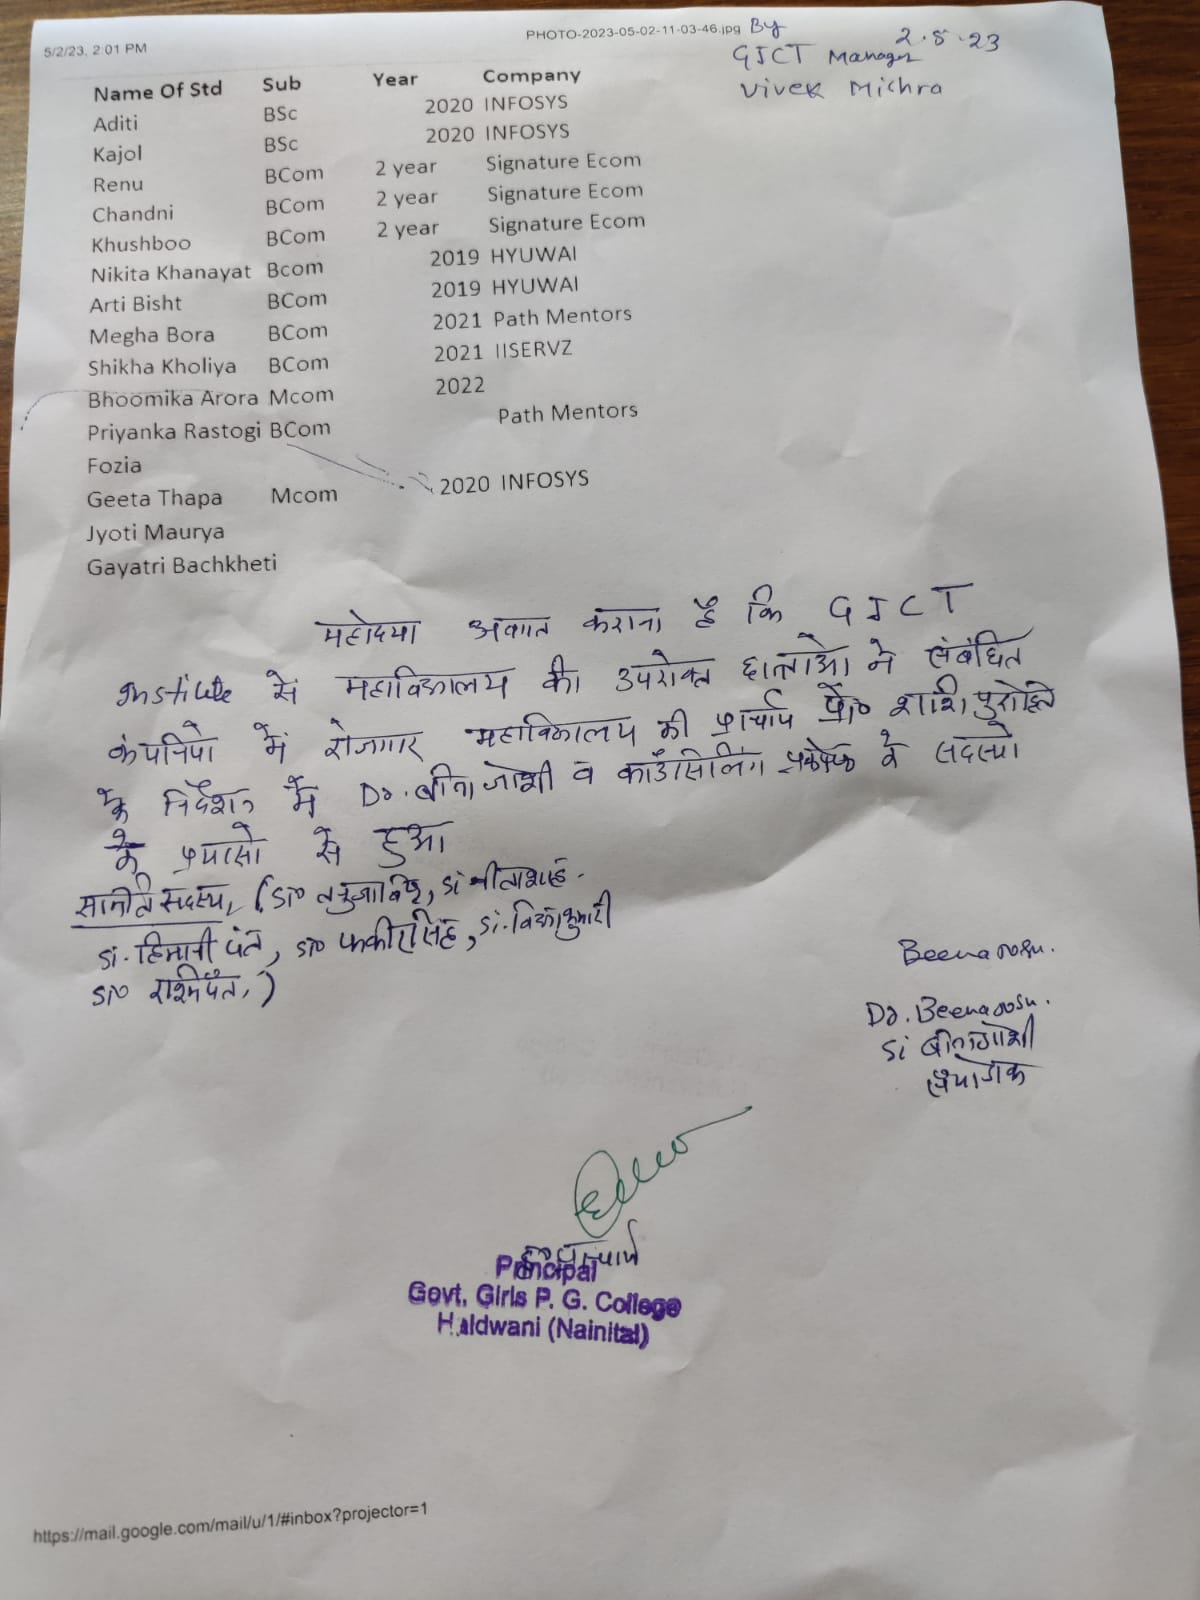 5/2/23, 2:01 PM
PHOTO-2023-05-02-11-03-46.jpg
By 2.5.23
GICT Manager
Vivek Michra
Name Of Std Sub Year Company
Aditi BSc 2020 INFOSYS
Kajol BSc 2020 INFOSYS
Renu BCom 2 year Signature Ecom
Chandni BCom 2 year Signature Ecom
Khushboo BCom 2 year Signature Ecom
Nikita Khanayat Bcom 2019 HYUWAI
Arti Bisht BCom 2019 HYUWAI
Megha Bora BCom 2021 Path Mentors
Shikha Kholiya BCom 2021 IISERVZ
Bhoomika Arora Mcom 2022
Priyanka Rastogi BCom Path Mentors
Fozia
Geeta Thapa Mcom 2020 INFOSYS
Jyoti Maurya
Gayatri Bachkheti
महोदया अवगत कराना है कि GICT
Institute से महाविद्यालय की उपरोक्त छात्राओ ने संबंधित
कंपनियो में रोजगार महाविद्यालय की प्राचार्य प्रो० शशि पुरोहित
के निर्देशन में Dr. बीना जोशी व काउंसिलिंग प्रकोष्ठ के सदस्यो
के प्रयासो से हुआ
समिति सदस्य, (डा० तनुजा बिष्ट, डा. नीता शाह.
डा. हिमानी पंत, डा० फकीर सिंह, डा. विद्या कुमारी
डा० रश्मि पंत,)
Beena Joshi.
Dr. Beena Joshi.
डा बीना जोशी
संयोजक
प्राचार्य
Principal
Govt. Girls P. G. College
Haldwani (Nainital)
https://mail.google.com/mail/u/1/#inbox?projector=1